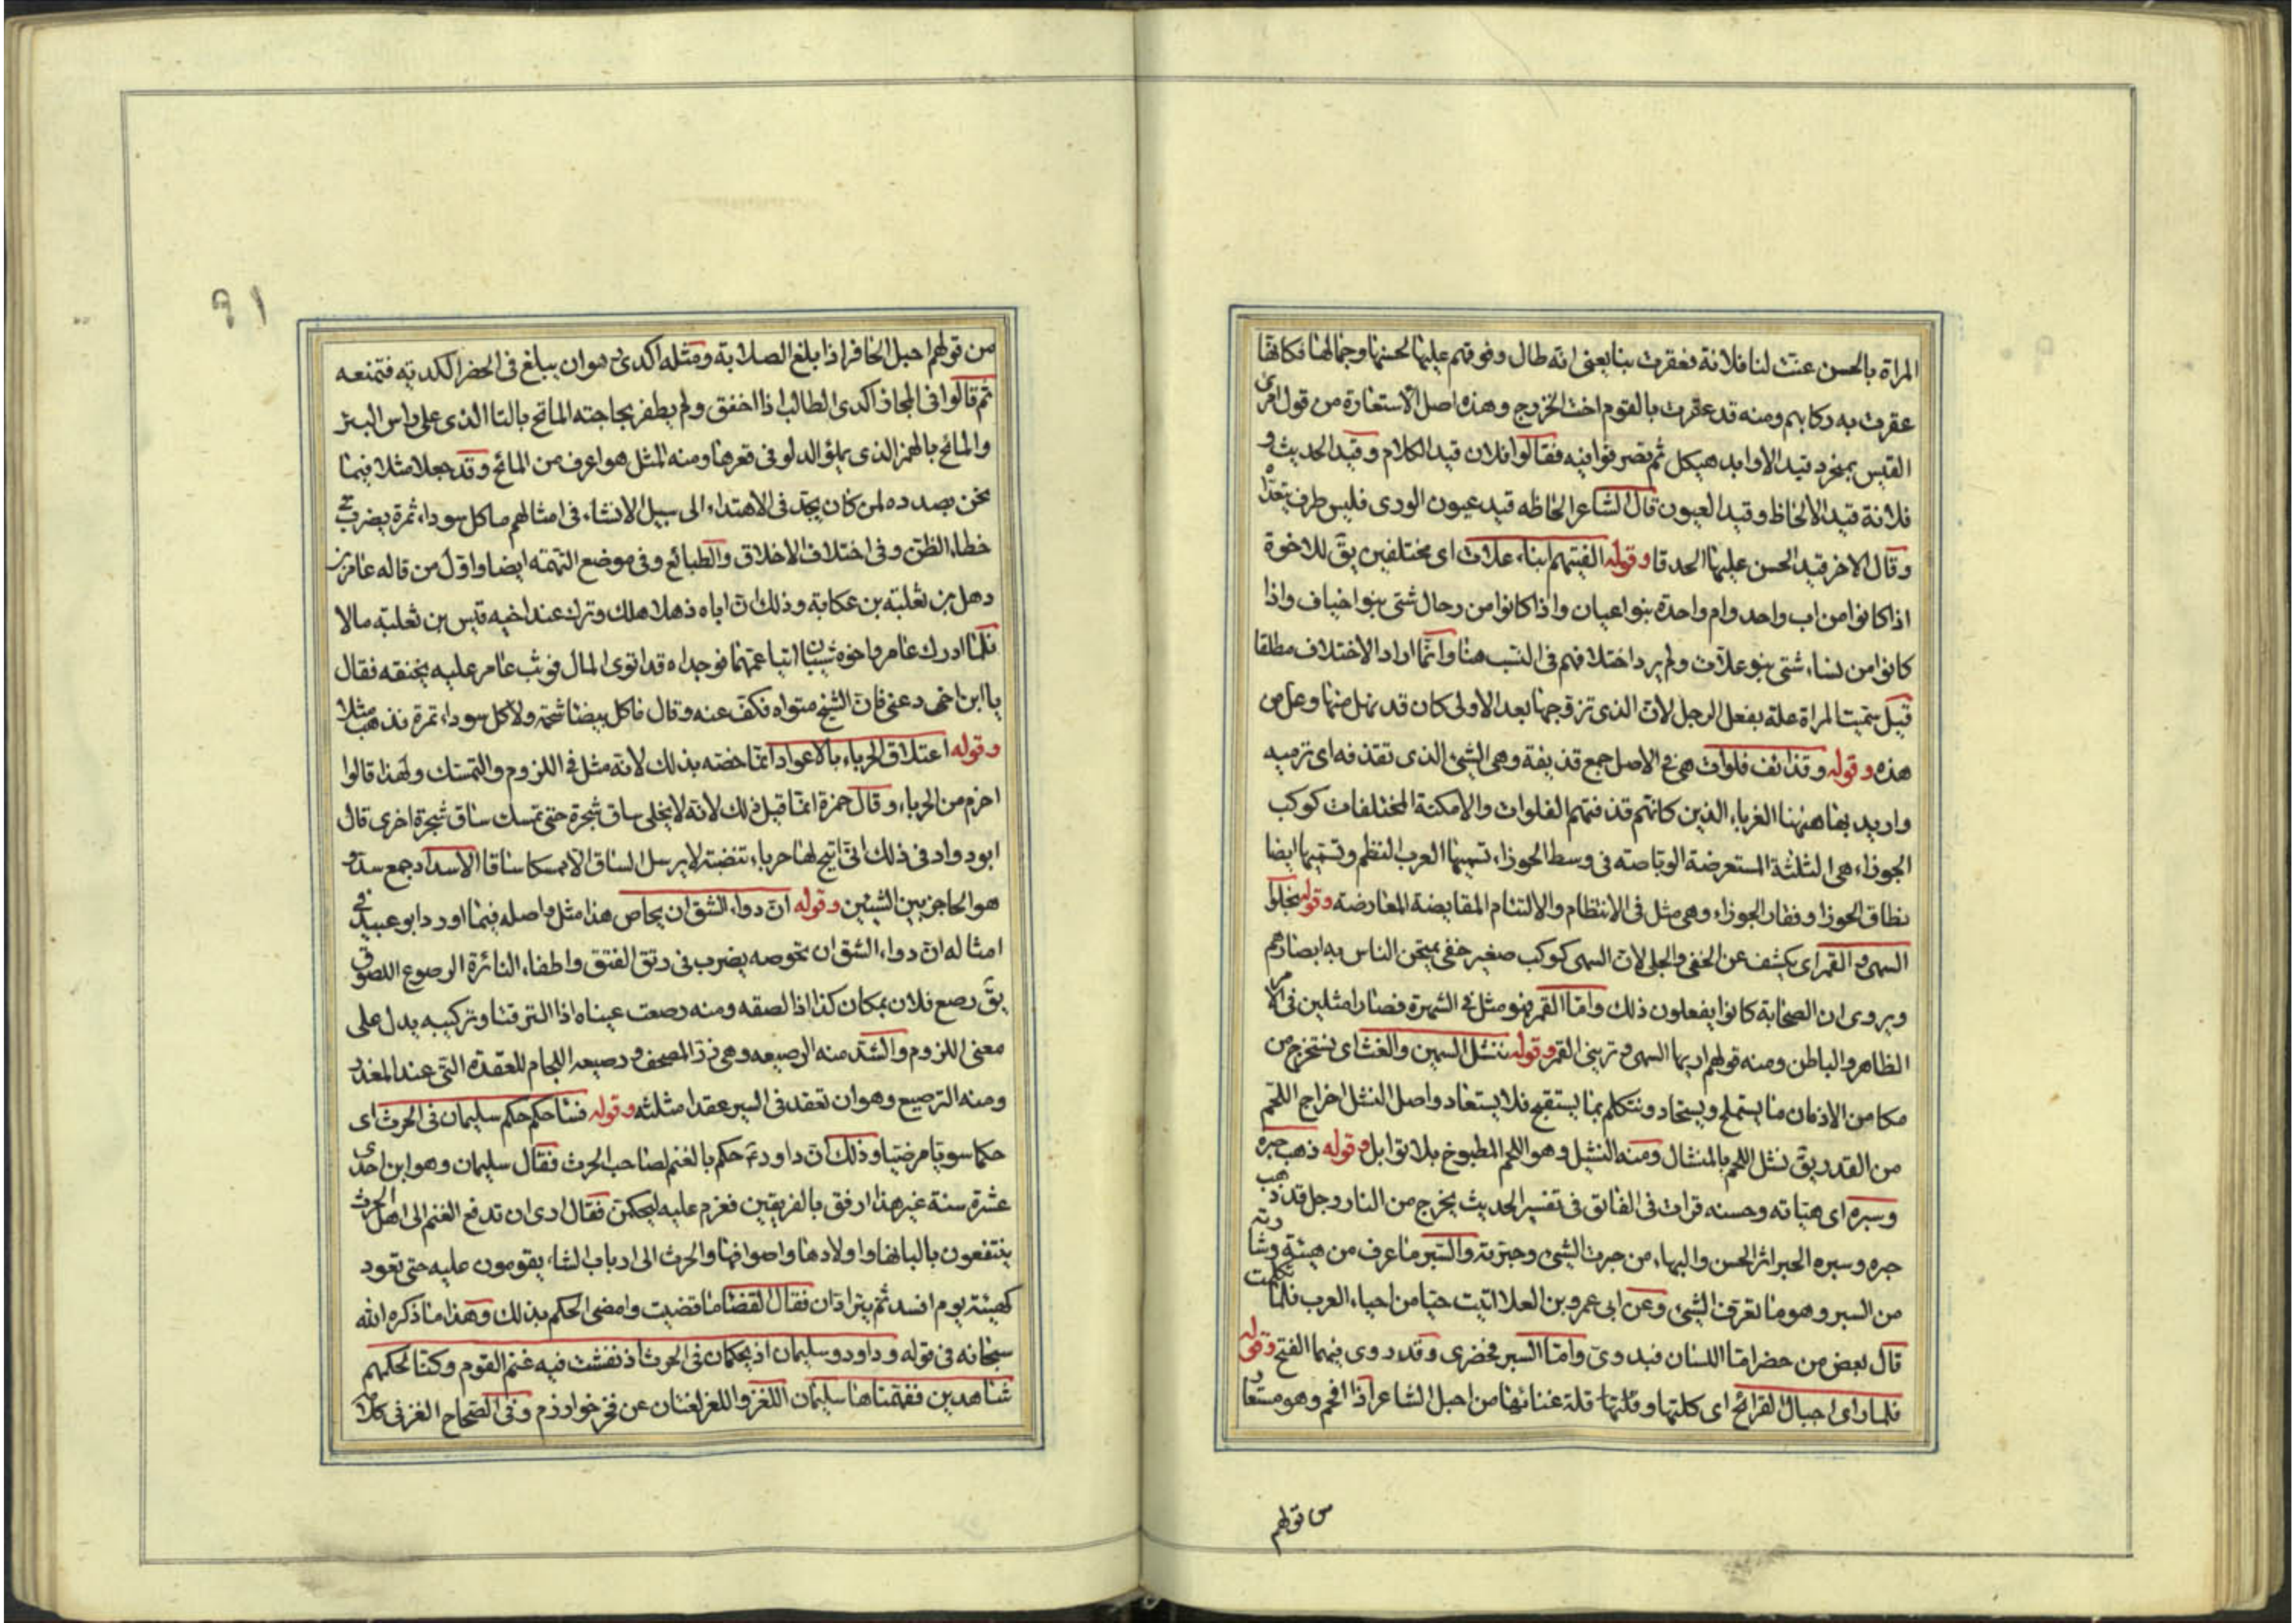 المراة بالحسن عنت لنا فلانة فعقرت بنا يعنى انه طال وقوفهم عليها لحسنها وجمالها فكانها
عقرت به ركابهم ومنه قد عقرت بالقوم اخت الخزرج وهذه اصل الاستعارة من قول امرئ
القيس بمنجرد قيد الاوابد هيكل ثم تصرفوا فيه فقالوا فلان قيد الكلام وقيد الحديث و
فلانة قيد الالحاظ وقيد العيون قال الشاعر الحاظه قيد عيون الورى فليس طرف يتعداه
وقال الاخر قيد الحسن عليها الحدقا وقوله الفيتهم ابناء علات اى مختلفين يق للاخوة
اذا كانوا من اب واحد وام واحدة بنوا عيان واذا كانوا من رجال شتى بنوا خياف واذا
كانوا من نساء شتى بنو علات ولم يرد اختلافهم فى النسب هنا وانما اراد الاختلاف مطلقا
قيل سميت المراة علة بفعل الرجل لان الذى تزوجها بعد الاولى كان قد نهل منها وعل من
هذه وقوله وقذائف فلوات هى فى الاصل جمع قذيفة وهى الشئ الذى تقذفه اى ترميه
واريد بها هٰهنا الغرباء الذين كانهم قذفتهم الفلوات والامكنة المختلفات كوكب
الجوزاء هى الثلثة المستعرضة الوباصته فى وسط الجوزاء تسميها العرب النظم وتسميها ايضا
نطاق الجوزا وفقار الجوزاء وهى مثل فى الانتظام والالتئام المقايضة المعارضة وقوله يجلوا
السهى والقمر اى يكشف عن الخفى والجلى لان السهى كوكب صغير خفى يمتحن الناس به ابصارهم
ويروى ان الصحابة كانوا يفعلون ذلك واما القمر فهو مثل فى الشهرة فصارا مثلين فى الامر
الظاهر والباطن ومنه قولهم اريها السهى وترينى القمر وقوله ننثل السمين والغث اى نستخرج من
مكامن الاذهان ما يستملح ويستجاد ونتكلم بما يستقبح فلا يستعاد واصل النثل اخراج اللحم
من القدر يق نشل اللحم بالمنشال ومنه النشيل وهو اللحم المطبوخ بلا توابل وقوله ذهب حبره
وسبره اى هيأته وحسنه قرات فى الفائق فى تفسير الحديث يخرج من النار رجل قد ذهب
حبره وسبره الحبر اثر الحسن والبهاء من حبرت الشئ وحبرته والسبر ما عرف من هيئته وشارته
من السبر وهو ما تعرف الشئ وعن ابى عمرو بن العلا اتيت حيا من احياء العرب فلما تكلمت
قال بعض من حضر اما اللسان فبدوى واما السبر فحضرى وقد روى فيهما الفتح وقوله
فلما راى احبال القرائح اى كلتها وقلتها قلة غنائها من احبل الشاعر اذا افحم وهو مستعار
من قولهم
٩١
من قولهم احبل الحافر اذا بلغ الصلابة ومثله اكدى هو ان يبلغ فى الحفر الكدية فتمنعه
ثم قالوا فى المجاز اكدى الطالب اذا اخفق ولم يظفر بحاجته الماتح بالتا الذى على راس البئر
والمائح بالهمز الذى يملؤ الدلو فى قعرها ومنه المثل هو اعرف من المائح وقد جعلا مثلا فيما
نحن بصدده لمن كان يجد فى الاهتداء الى سبيل الانشاء فى امثالهم ما كل سوداء ثمرة يضرب فى
خطاء الظن وفى اختلاف الاخلاق والطبائع وفى موضع التهمة ايضا واول من قاله عامر بن
دهل بن ثعلبة بن عكابة وذلك ان اباه ذهلا هلك وترك عند اخيه قيس بن ثعلبة مالا
فلما ادرك عامر واخوه شيبان اتيا عمهما فوجداه قد اتوى المال فوثب عامر عليه يخنقه فقال
يا ابن اخى دعنى فان الشيخ متواه فكف عنه وقال ما كل بيضا شحمة ولا كل سوداء تمرة فذهب مثلا
وقوله اعتلاق الحرباء بالاعواد انما خصه بذلك لانه مثل فى اللزوم والتمسك ولهذا قالوا
احزم من الحرباء وقال حمزة انما قيل ذلك لانه لا يخلى ساق شجرة حتى تمسك ساق شجرة اخرى قال
ابو دواد فى ذلك انى اتيح لها حرباء تنضبة لا يرسل الساق الا ممسكا ساقا الاسداد جمع سد و
هو الحاجز بين الشيئين وقوله ان دواء الشق ان يحاص هذا مثل واصله فيما اورد ابو عبيد فى
امثاله ان دواء الشق ان تحوصه يضرب فى رتق الفتق واطفاء النائرة الرصوع اللصوق
يق رصع فلان بمكان كذا اذا لصقه ومنه رصعت عيناه اذا التزقتا وتركيبه يدل على
معنى اللزوم والشد منه الرصيعه وهى زر المصحف ورصيعه اللجام للعقدة التى عند المعذر
ومنه الترصيع وهو ان تعقد فى السير عقدا مثلثه وقوله فنسا حكم حكم سليمان فى الحرث اى
حكما سويا مرضيا وذلك ان داود ع حكم بالغنم لصاحب الحرث فقال سليمان وهو ابن احدى
عشرة سنة غير هذا ارفق بالفريقين فعزم عليه ليحكمن فقال ارى ان تدفع الغنم الى اهل الحرث
ينتفعون بالبانها واولادها واصوافها والحرث الى ارباب الشاء يقومون عليه حتى تعود
كهيئته يوم افسد ثم يترادان فقال القضا ما قضيت وامضى الحكم بذلك وهذا ما ذكره الله
سبحانه فى قوله وداود وسليمان اذ يحكمان فى الحرث اذ نفشت فيه غنم القوم وكنا لحكمهم
شاهدين ففهمناها سليمان اللغز واللغز لغتان عن فخر خوارزم وفى الصحاح الغز فى كلامه